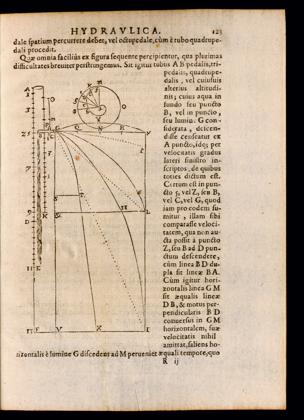 HYDRAVLICA. 123
dale spatium percurrere debet, vel octupedale, cùm è tubo quadrupe-
dali procedit.
Quæ omnia faciliùs ex figura sequente percipientur, qua plurimas
difficultates breuiter perstringemus. Sit igitur tubus A B pedalis, tri-
pedalis, quadrupe-
dalis, vel cuiusuis
alterius altitudi-
nis; cuius aqua in
fundo seu puncto
B, vel in puncto,
seu lumine G con-
siderata, descen-
disse censeatur ex
A puncto, idque per
velocitatis gradus
lateri sinistro in-
scriptos, de quibus
toties dictum est.
Certum est in pun-
cto 5, vel Z, seu B,
vel C, vel G, quod
iam pro eodem su-
mitur, illam sibi
comparasse veloci-
tatem, qua non au-
cta possit à puncto
Z, seu B ad D pun-
ctum descendere,
cùm linea B D du-
pla sit lineæ BA.
Cùm igitur hori-
zontalis linea G M
sit æqualis lineæ
D B, & motus per-
pendicularis B D
conuersus in G M
horizontalem, suæ
velocitatis nihil
amittat, saliens ho-
rizontalis è lumine G discedens ad M perueniet æquali tempore, quo
R ij